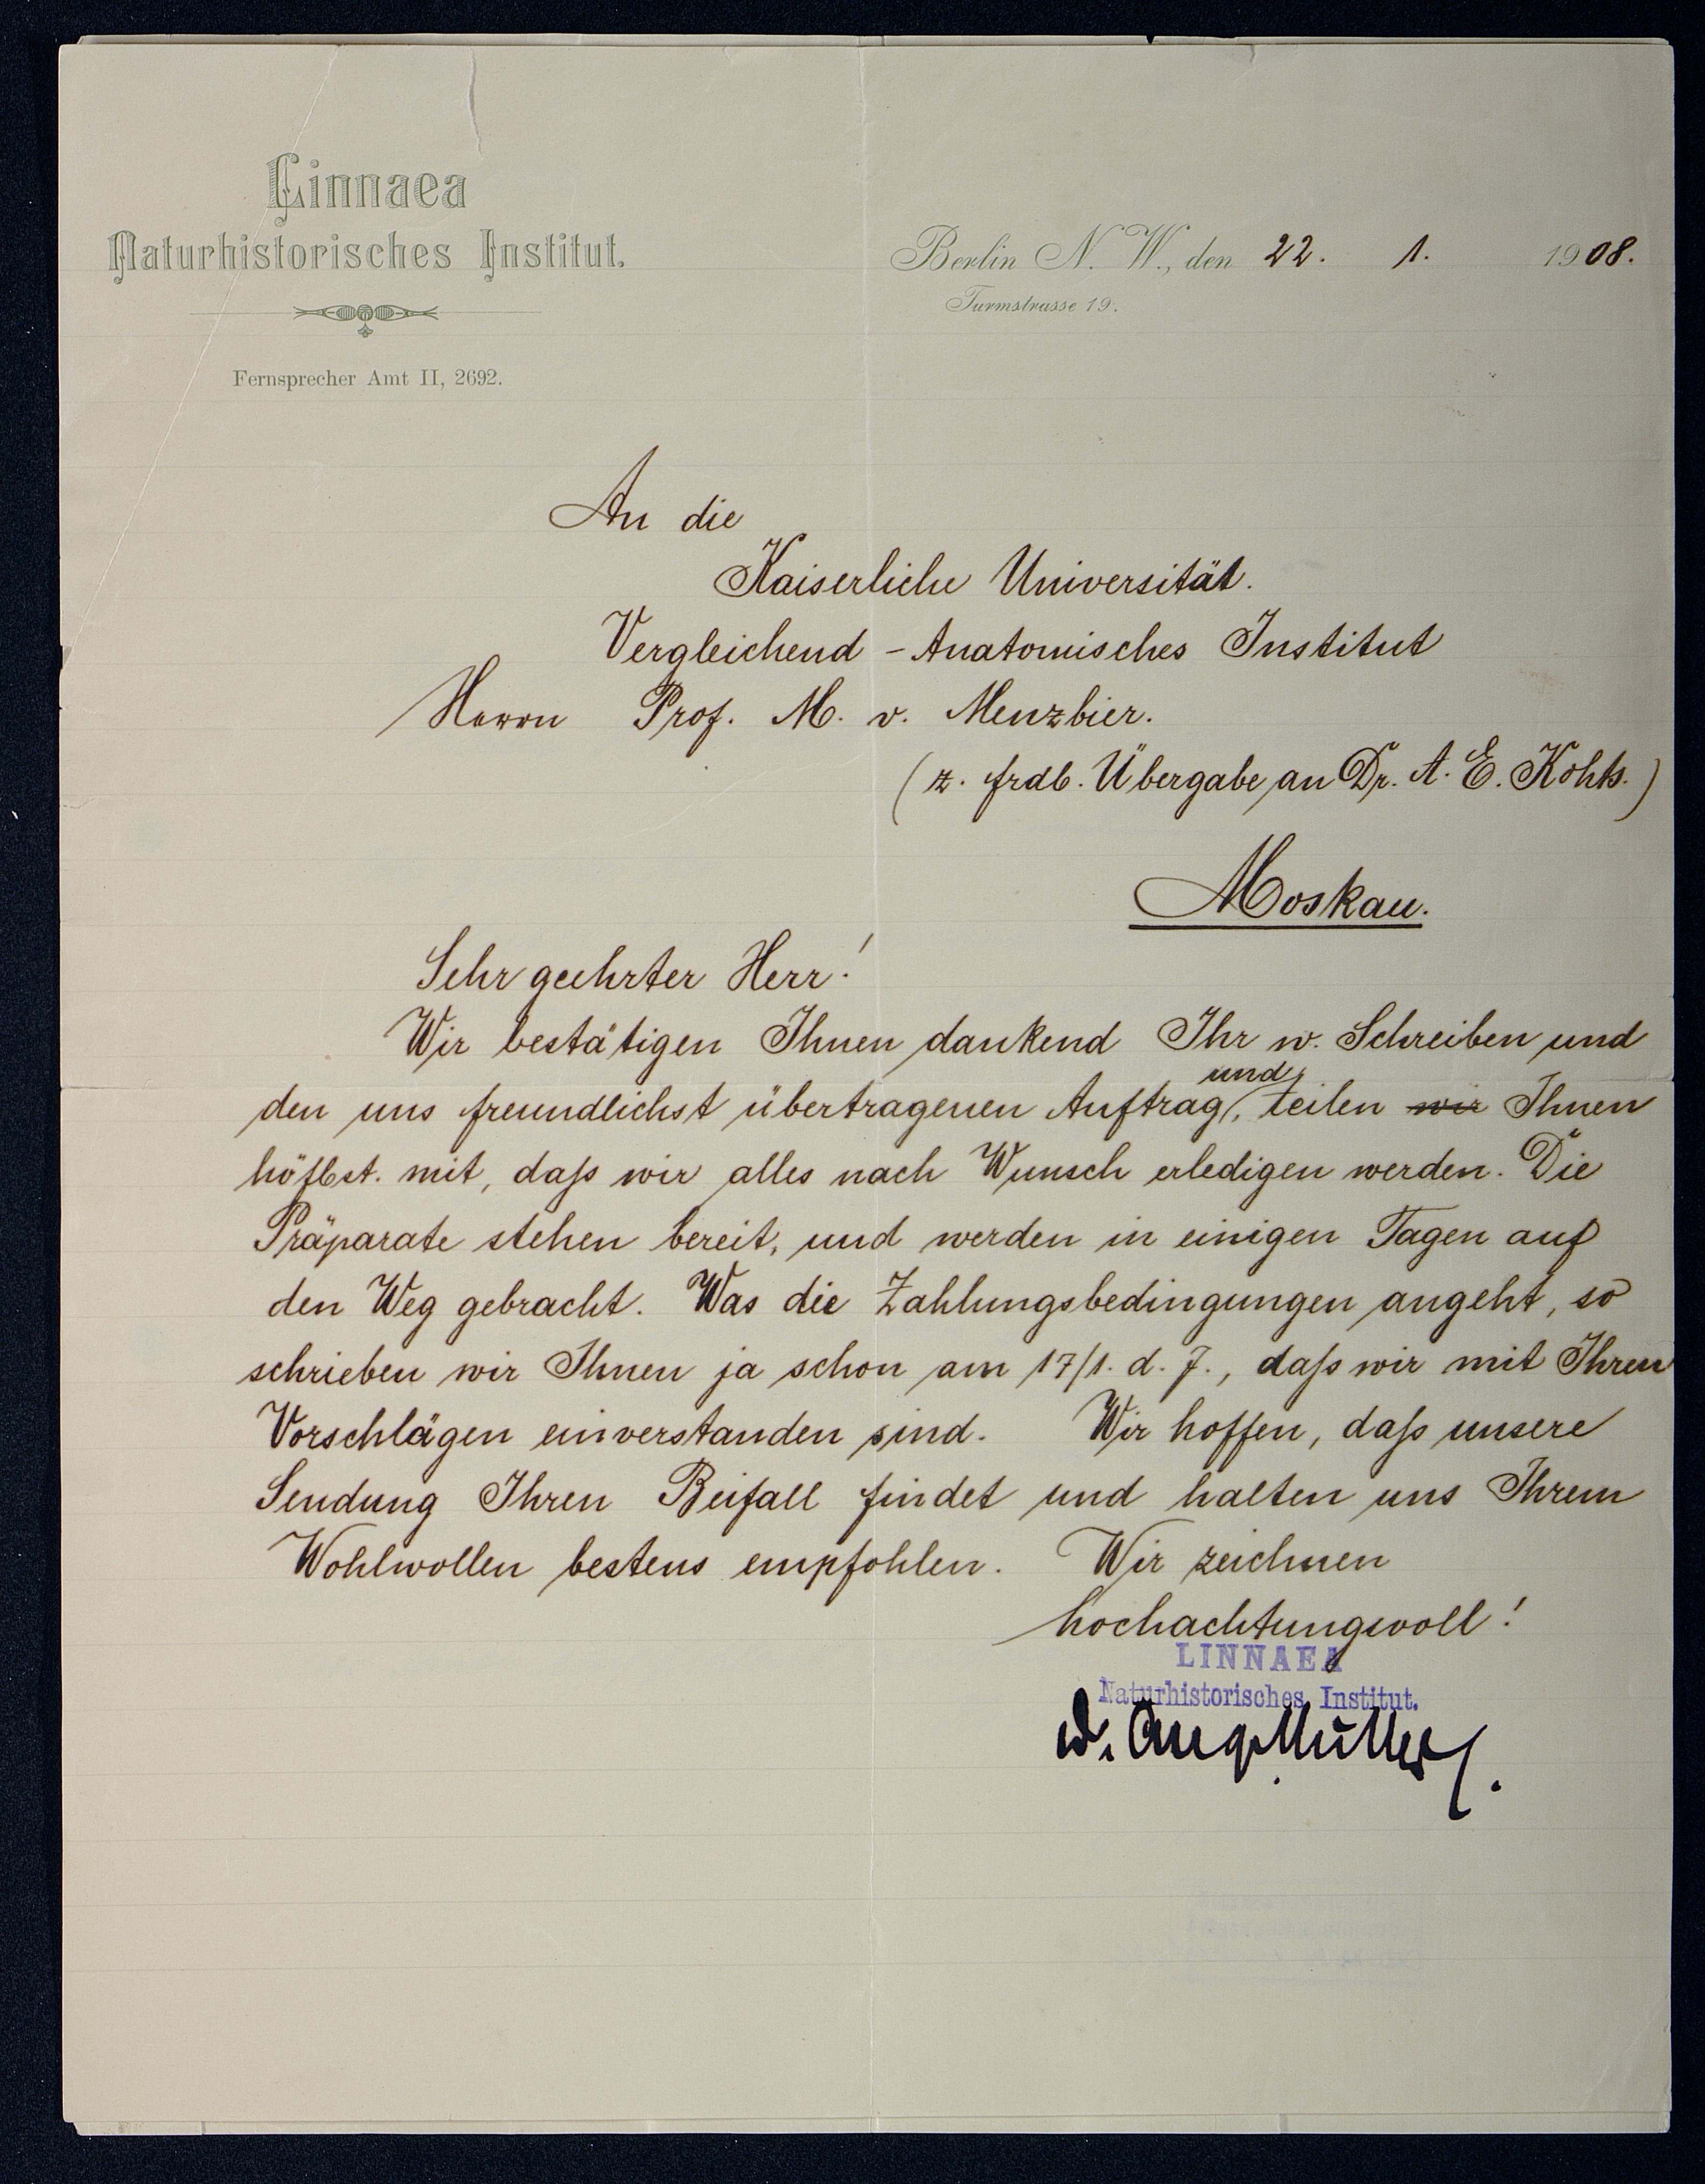 Linnaea
Naturhistorisches Institut.
Fernsprecher Amt II, 2692.
Berlin N. W., den 22. 1. 1908.
Turmstrasse 19.
An die
Kaiserliche Universität.
Vergleichend-Anatomisches Institut
Herrn Prof. M. v. Menzbier.
(z. frdl. Übergabe an Dr. A. E. Kohts.)
Moskau.
Sehr geehrter Herr!
Wir bestätigen Ihnen dankend Ihr w. Schreiben und
den uns freundlichst übertragenen Auftrag, und teilen wir Ihnen
höflst. mit, daß wir alles nach Wunsch erledigen werden. Die
Präparate stehen bereit, und werden in einigen Tagen auf
den Weg gebracht. Was die Zahlungsbedingungen angeht, so
schrieben wir Ihnen ja schon am 17/1. d. J., daß wir mit Ihren
Vorschlägen einverstanden sind. Wir hoffen, daß unsere
Sendung Ihren Beifall findet und halten uns Ihrem
Wohlwollen bestens empfohlen. Wir zeichnen
hochachtungsvoll!
LINNAEA
Naturhistorisches Institut.
Dr. Aug. Müller.